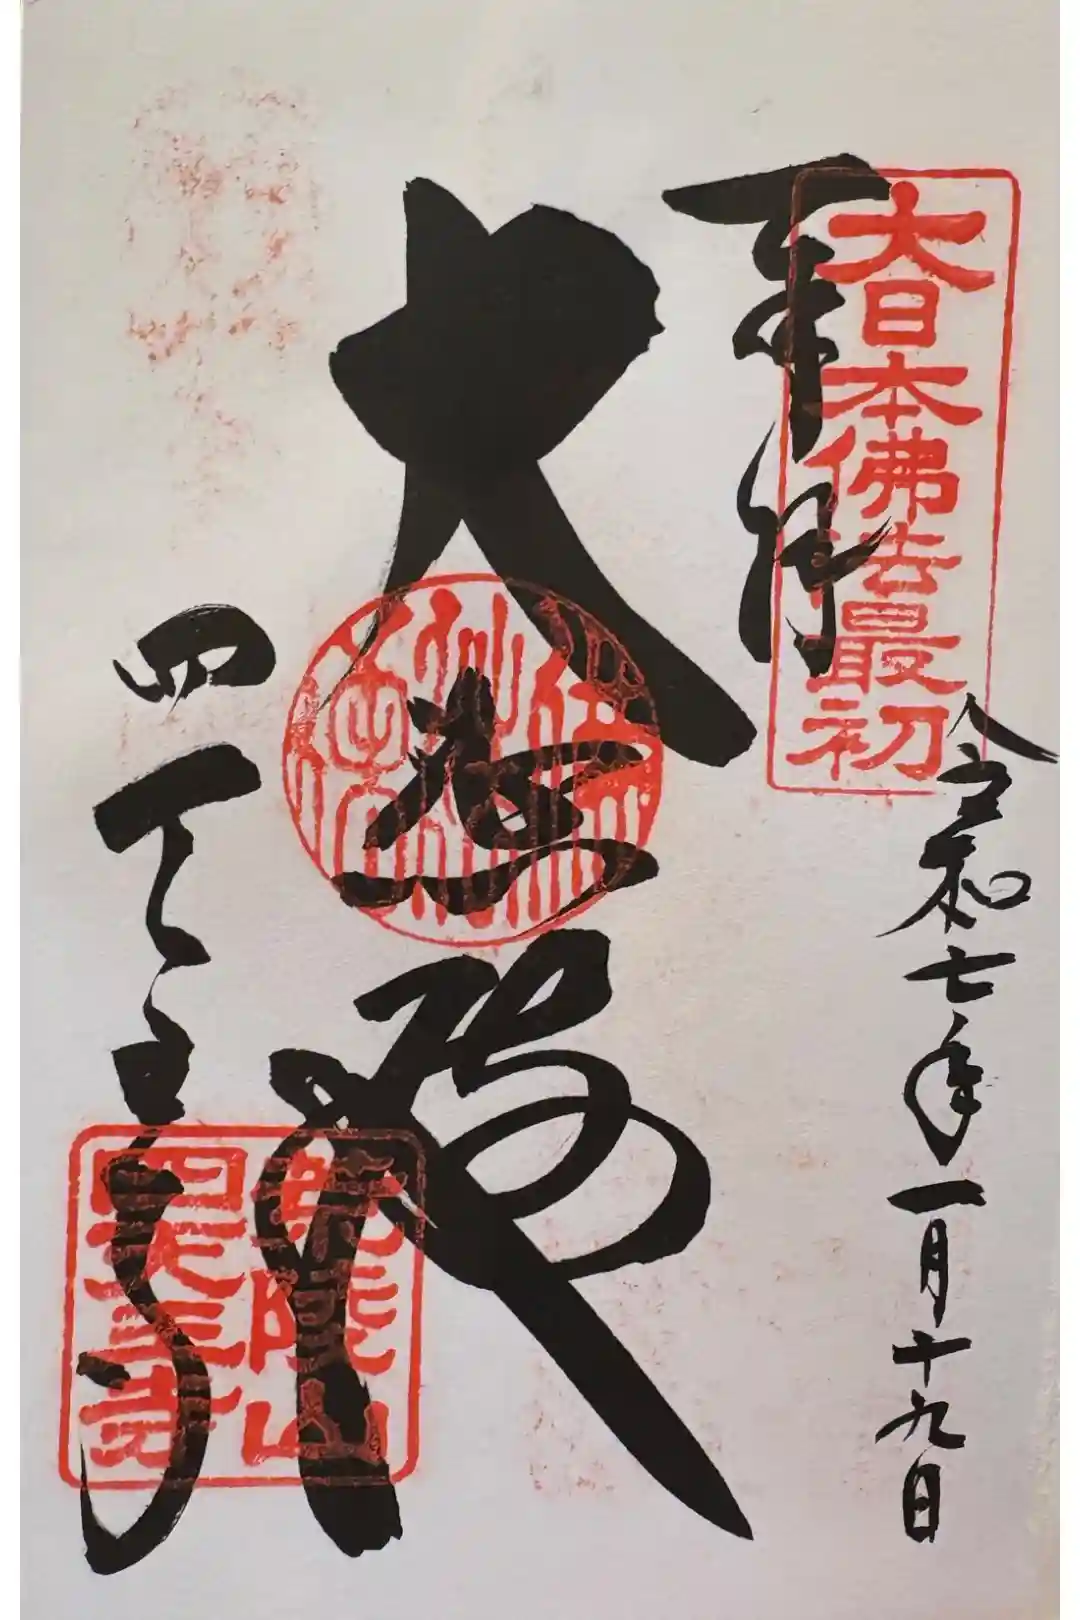 大日本佛法最初
奉拝
令和七年一月十九日
大悲殿
四天王寺
荒陵山
四天王寺